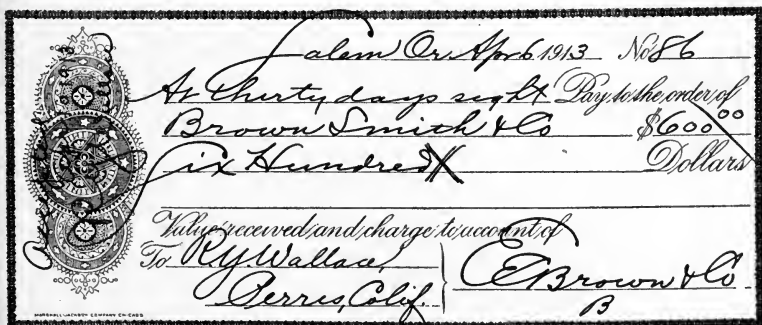 Salem Or. Apr 6 1913 No. 86
At thirty days sight Pay to the order of
Brown Smith & Co $600 00
Six Hundred Dollars
Value received and charge to account of
To R.Y. Wallace,
Perris, Calif.
E Brown & Co
B
MARSHALL-JACKSON COMPANY CHICAGO